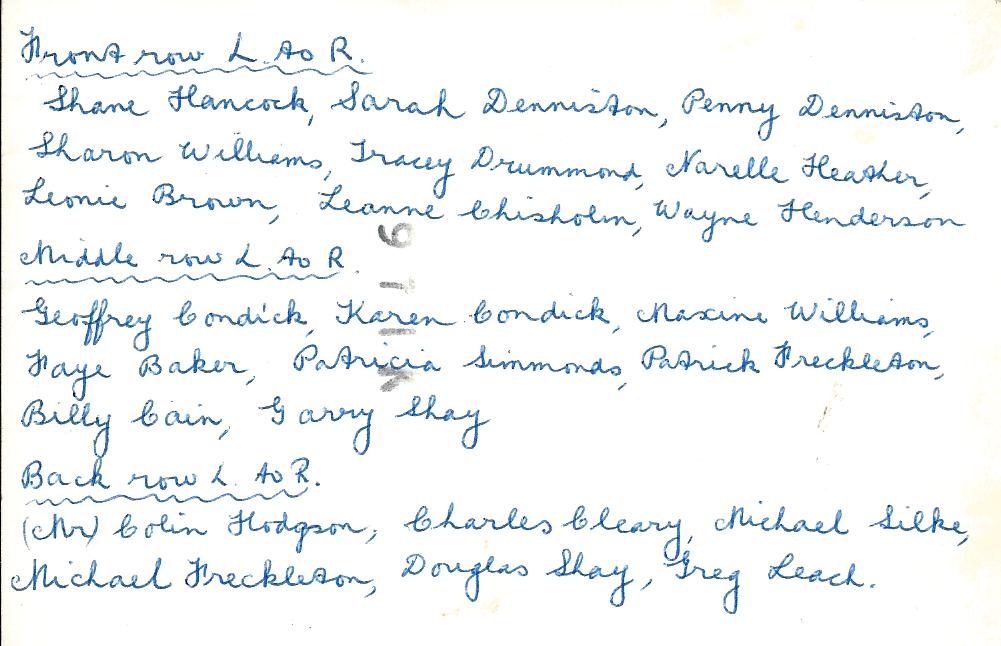 Front row L. to R.
Shane Hancock, Sarah Denniston, Penny Denniston,
Sharon Williams, Tracey Drummond, Narelle Heather,
Leonie Brown, Leanne Chisholm, Wayne Henderson
Middle row L. to R.
Geoffrey Condick, Karen Condick, Maxine Williams,
Faye Baker, Patricia Simmonds, Patrick Freckleton,
Billy Cain, Garry Shay
Back row L. to R.
(Mr) Colin Hodgson, Charles Cleary, Michael Silke,
Michael Freckleton, Douglas Shay, Greg Leach.